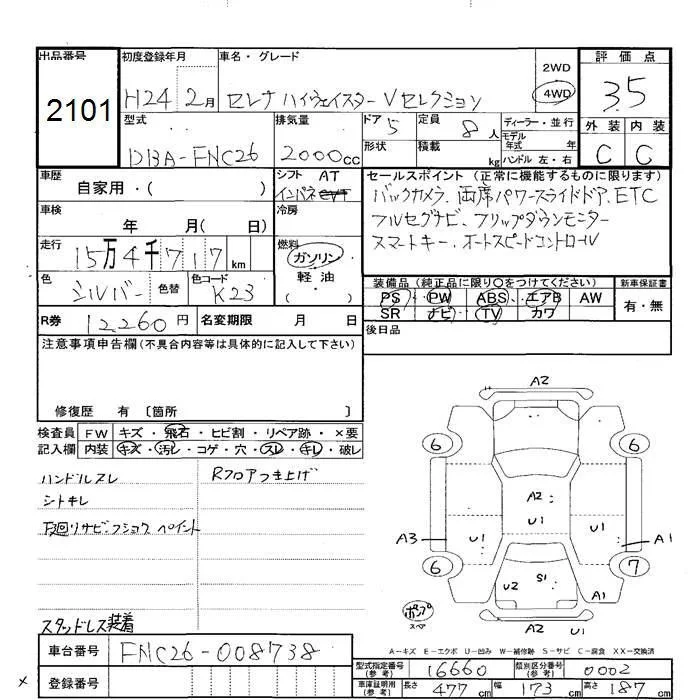 出品番号 初度登録年月 車名・グレード 2WD 評価点
2101 H24 2月 セレナ ハイウェイスター Vセレクション 4WD 3.5
型式 排気量 ドア 5 定員 8人 ディーラー・並行 外装 内装
DBA-FNC26 2000cc 形状 積載 kg モデル年式 年 C C
ハンドル 左・右
車歴 シフト AT セールスポイント(正常に機能するものに限ります)
自家用・( ) インパネ バックカメラ、両席パワースライドドア、ETC
車検 冷房 フルセグナビ、フリップダウンモニター
年 月( 日) スマートキー、オートスピードコントロール
走行 15万4千717km 燃料 ガソリン・軽油・( )
色 シルバー 色替 色コード K23
装備品(純正品に限り○をつけてください) 新車保証書
PS PW ABS エアB AW 有・無
SR ナビ TV カワ
R券 12260円 名変期限 月 日 後日品
注意事項申告欄(不具合内容等は具体的に記入して下さい)
修復歴 有 〔箇所 〕
検査員 FW キズ・飛石・ヒビ割・リペア跡・×要
記入欄 内装 キズ・汚レ・コゲ・穴・スレ・キレ・破レ
ハンドルスレ Rフロアつき上げ
シトキレ
下回りサビ、フショク ペイント
スタッドレス装着
A2
6 6
A2
U1
A3 U1 U1 A1
6 7
U2 S1 A1
ポンプ
スペア
A2 U1
A-キズ E-エクボ U-凹み W-補修跡 S-サビ C-腐食 XX-交換済
車台番号 FNC26-008738
型式指定番号(参考) 16660 類別区分番号(参考) 0002
× 登録番号
車庫証明用(参考) 長さ 477cm 幅 173cm 高さ 187cm